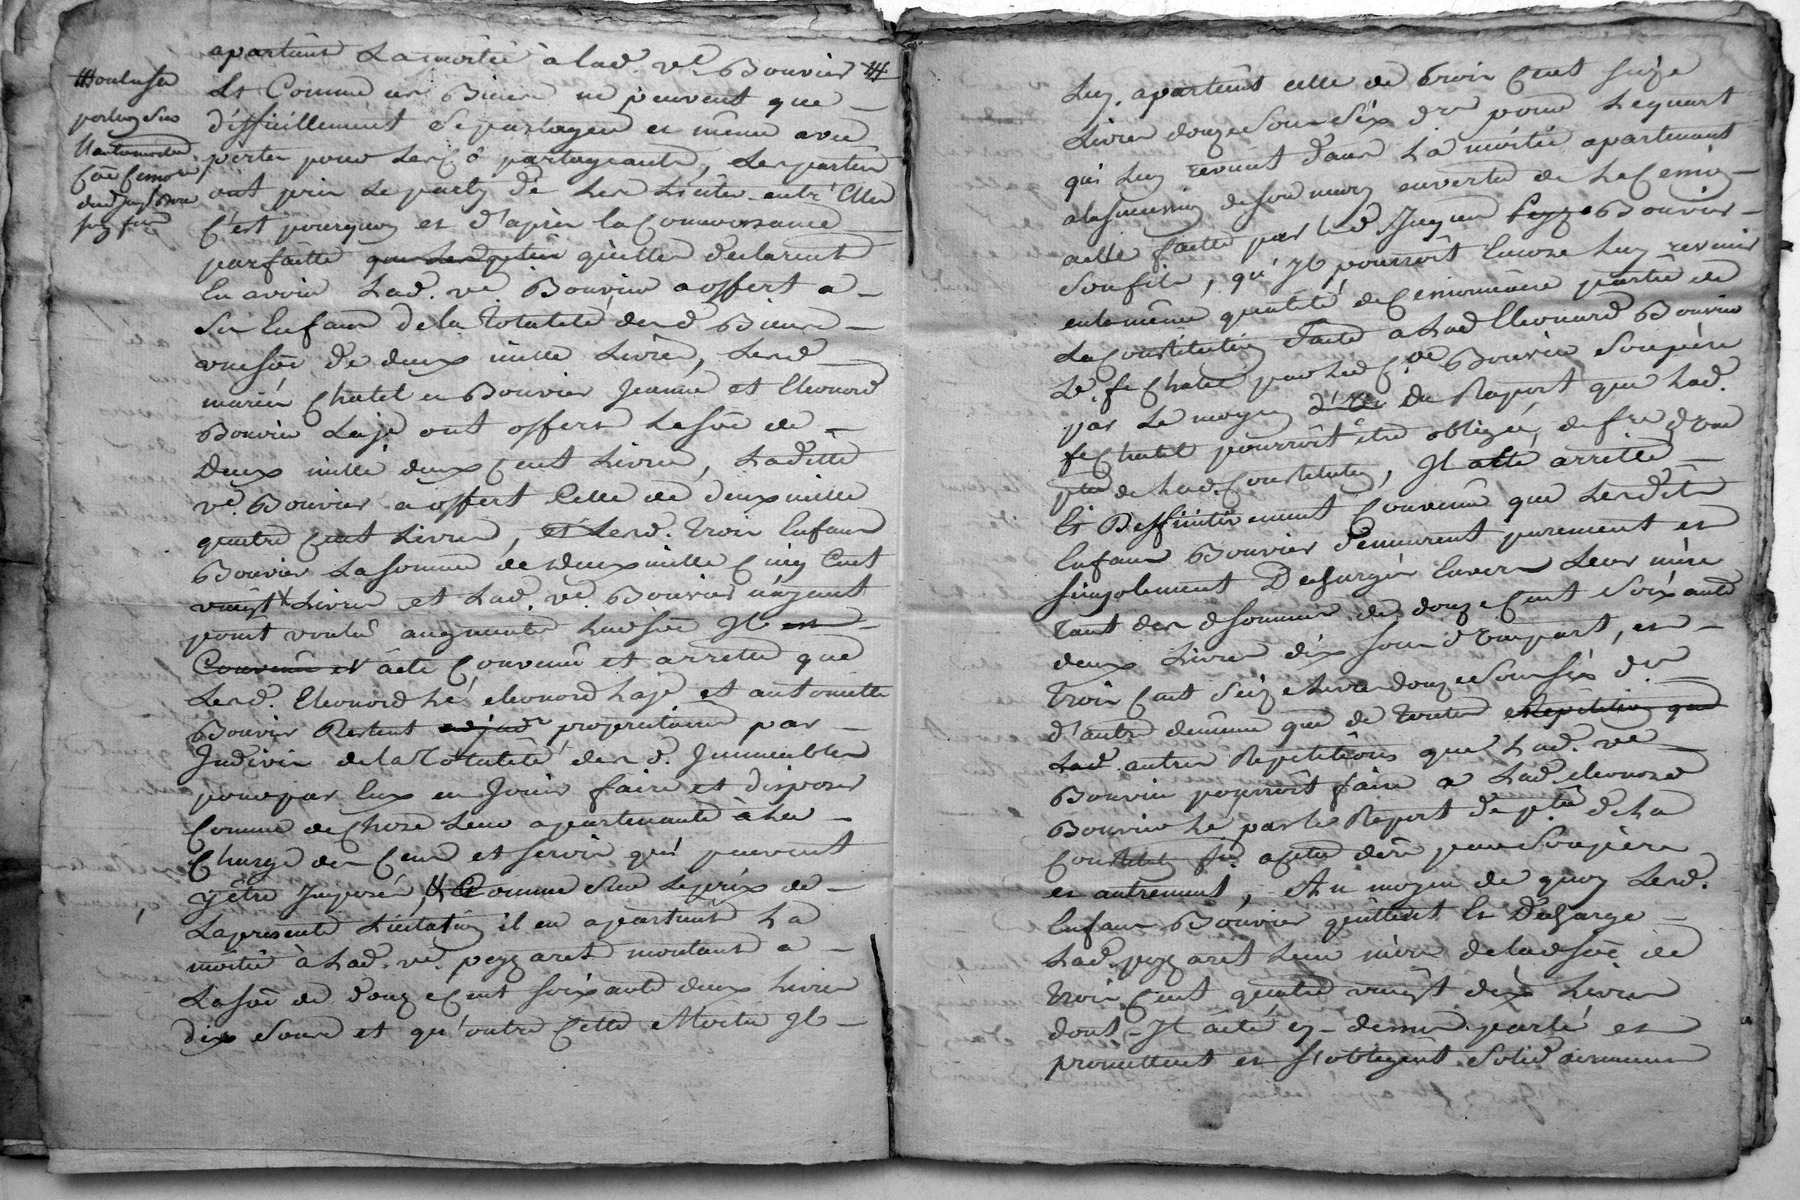 apartient La moitié à lad. ve. Bouvier #
Et Comme ces Biens ne peuvent que
difficillement se partager et même avec
perte pour les Cô partageants, Les parties
ont pris Le party de Les Liciter entr'Elles
C'est pourquoy et d'après la Connoissance
parfaitte qu'elles declarent
En avoir Lad. ve. Bouvier a offert a
Ses Enfans de la Totalité desd. Biens
une sõe de deux mille Livres, Lesd.
mariés Chatel et Bouvier Jeanne et Eleonord
Bouvier Laje ont offert La sõe de
Deux mille deux Cent Livres, Laditte
ve. Bouvier a offert Celle de deux mille
quatre Cent Livres, et Lesd. Trois Enfans
Bouvier La somme de deux mille Cinq Cent
vingt Livres et Lad. ve. Bouvier n'ayant
point voulu augmenter Lad. sõe Il est
Convenu et a été Convenu et arreté que
Lesd. Eleonord Lé, eleonord Laje et antoinette
Bouvier Restent propriétaires par
Indivis de la Totalité desd. Immeubles
pour par Eux en Jouir faire et disposer
Comme de Chose Leur apartenante à La
Charge des Cens et servis qui peuvent
y être Imposés, Comme sur Le prix de
La presente Licitation il en apartient La
moitié à Lad. ve. peyzaret montant a
La sõe de douze Cent soixante deux Livres
dix Sous et qu'outre Cette Moitié Il
Luy apartient celle de trois Cent seize
Livres douze Sous Six drs pour Le quart
qui Luy revient dans La moitié apartenant
a la succession de son mary ouverte de La Cession
a elle faitte par led. Bouvier
son fils, qu'Il pourroit Encore Luy revenir
en la même qualité de Cessionnaire partie de
La Constitution faite a Lad Eleonord Bouvier
Le. fe Chatel par led. Bouvier Son père
par Le moyen du Raport que Lad.
fe Chatel pourroit être obligée de fre d'une
ptie de Lad. Constitution, Il a été arretté
Et Deffinitivement Convenu que Lesdits
Enfans Bouvier demeurent purement et
simplement Dechargés Envers Leur mère
Tant des d Sommes de douze Cent Soixante
deux Livres dix sous d'une part, et
Trois Cent Seize Livres douze Sous six drs
d'autre de même que de Toutes Répétition que
Lad. autres Repetitions que Lad. ve
Bouvier pourroit faire a Lad. eleonord
Bouvier Lé par le Raport de ptie de La
Constitution a elle faite par Son père
et autrement, Au moyen de quoy Lesd.
Enfans Bouvier quittent Et Décharge
Lad. peyzaret Leur mère de lad sõe de
Trois Cent quatre vingt dix Livres
dont Il a été cy-dessus parlé et
promettent et s'obligent Solidairement